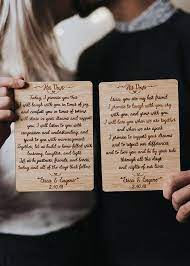 His Vows
Today I promise you this
I will laugh with you in times of joy
and comfort you in times of sorrow
I will share in your dreams and support
you. I will listen to you with
compassion and understanding, and
speak to you with encouragement.
Together, let us build a home filled with
learning, laughter, and light.
Let us be partners, friends, and lovers,
today and all of the days that follow.
2.10.18
Her Vows
you are my best friend.
I promise to laugh with you, cry
with you, and grow with you.
I will love you when we are together
and when we are apart.
I promise to support your dreams
and to respect our differences, and
to love you and be by your side
through all the days
and nights of our lives.
2.10.18